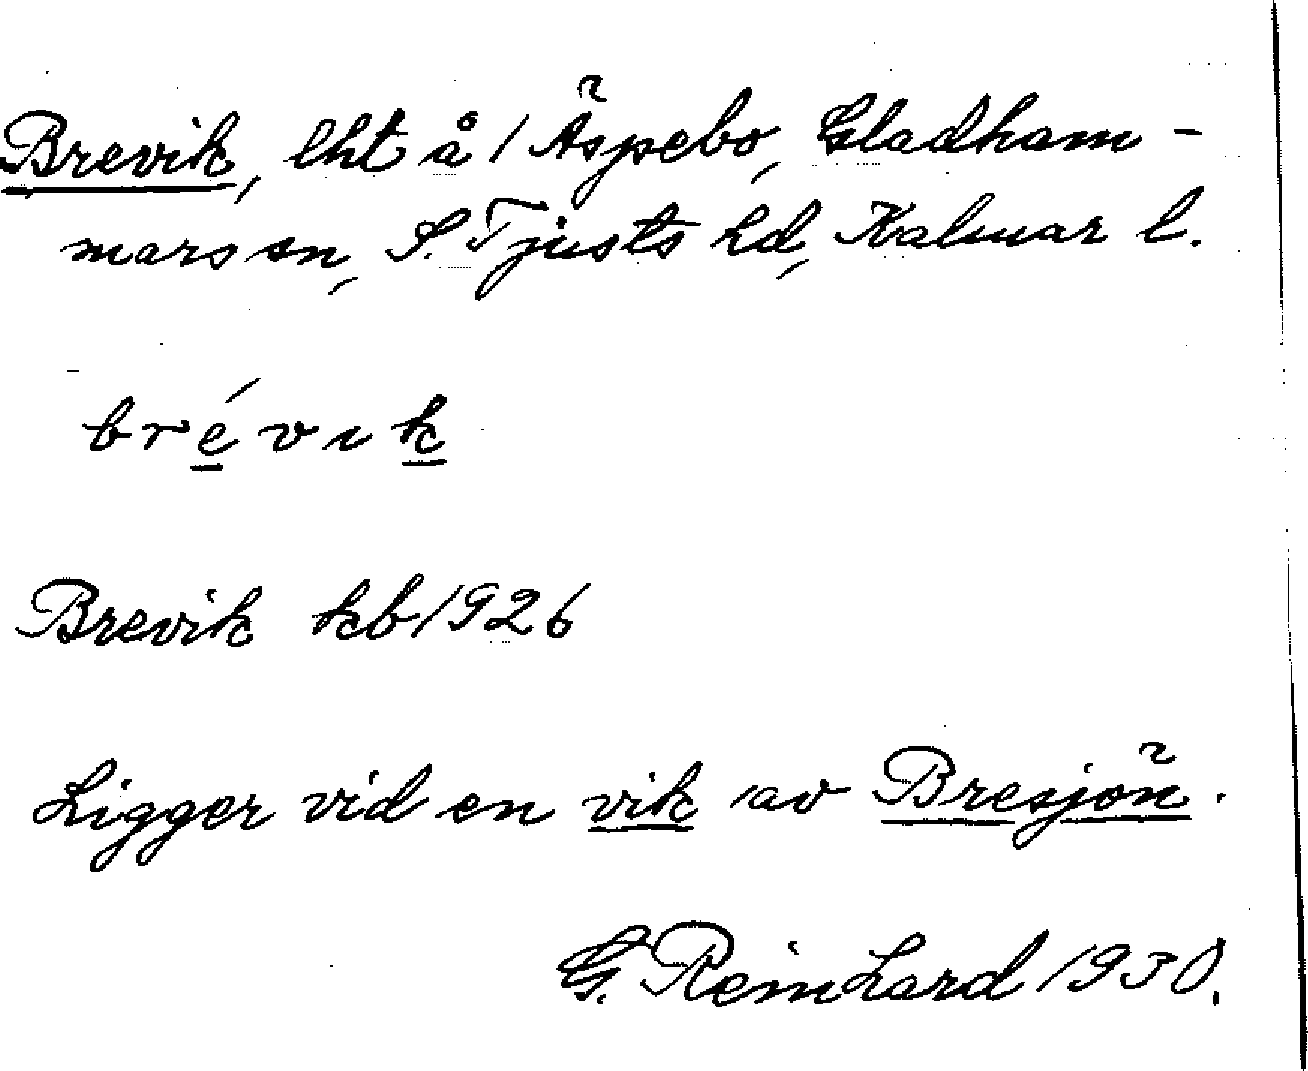 Brevik, lht å 1 Äspebo, Gladham-
mars sn, S. Tjusts hd, Kalmar l.
brévık
Brevik kb 1926
Ligger vid en vik av Bresjön.
G. Reinhard 1930.